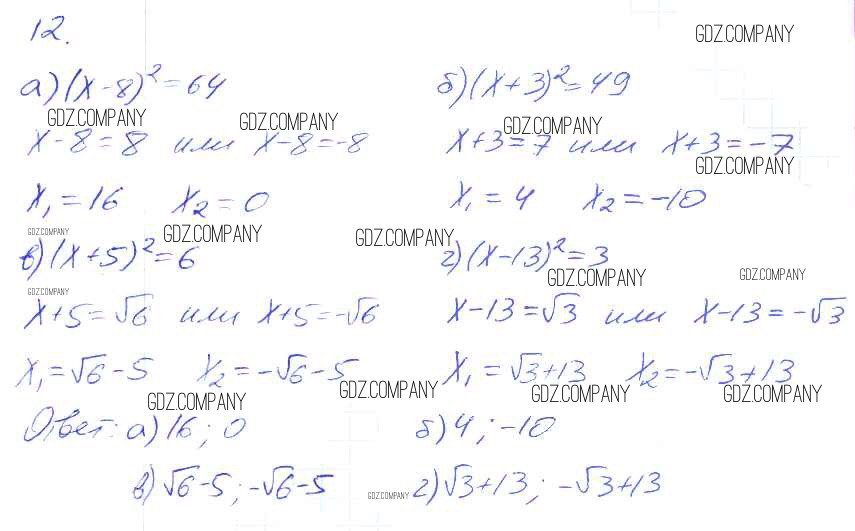 12.
GDZ.COMPANY
а) (x-8)²=64
б) (x+3)²=49
GDZ.COMPANY
GDZ.COMPANY
GDZ.COMPANY
x-8=8 или x-8=-8
x+3=7 или x+3=-7
GDZ.COMPANY
x₁=16 x₂=0
x₁=4 x₂=-10
GDZ.COMPANY
GDZ.COMPANY
GDZ.COMPANY
в) (x+5)²=6
г) (x-13)²=3
GDZ.COMPANY
GDZ.COMPANY
GDZ.COMPANY
x+5=√6 или x+5=-√6
x-13=√3 или x-13=-√3
x₁=√6-5 x₂=-√6-5
x₁=√3+13 x₂=-√3+13
GDZ.COMPANY
GDZ.COMPANY
GDZ.COMPANY
GDZ.COMPANY
Ответ: а) 16; 0
б) 4; -10
в) √6-5; -√6-5
GDZ.COMPANY
г) √3+13; -√3+13